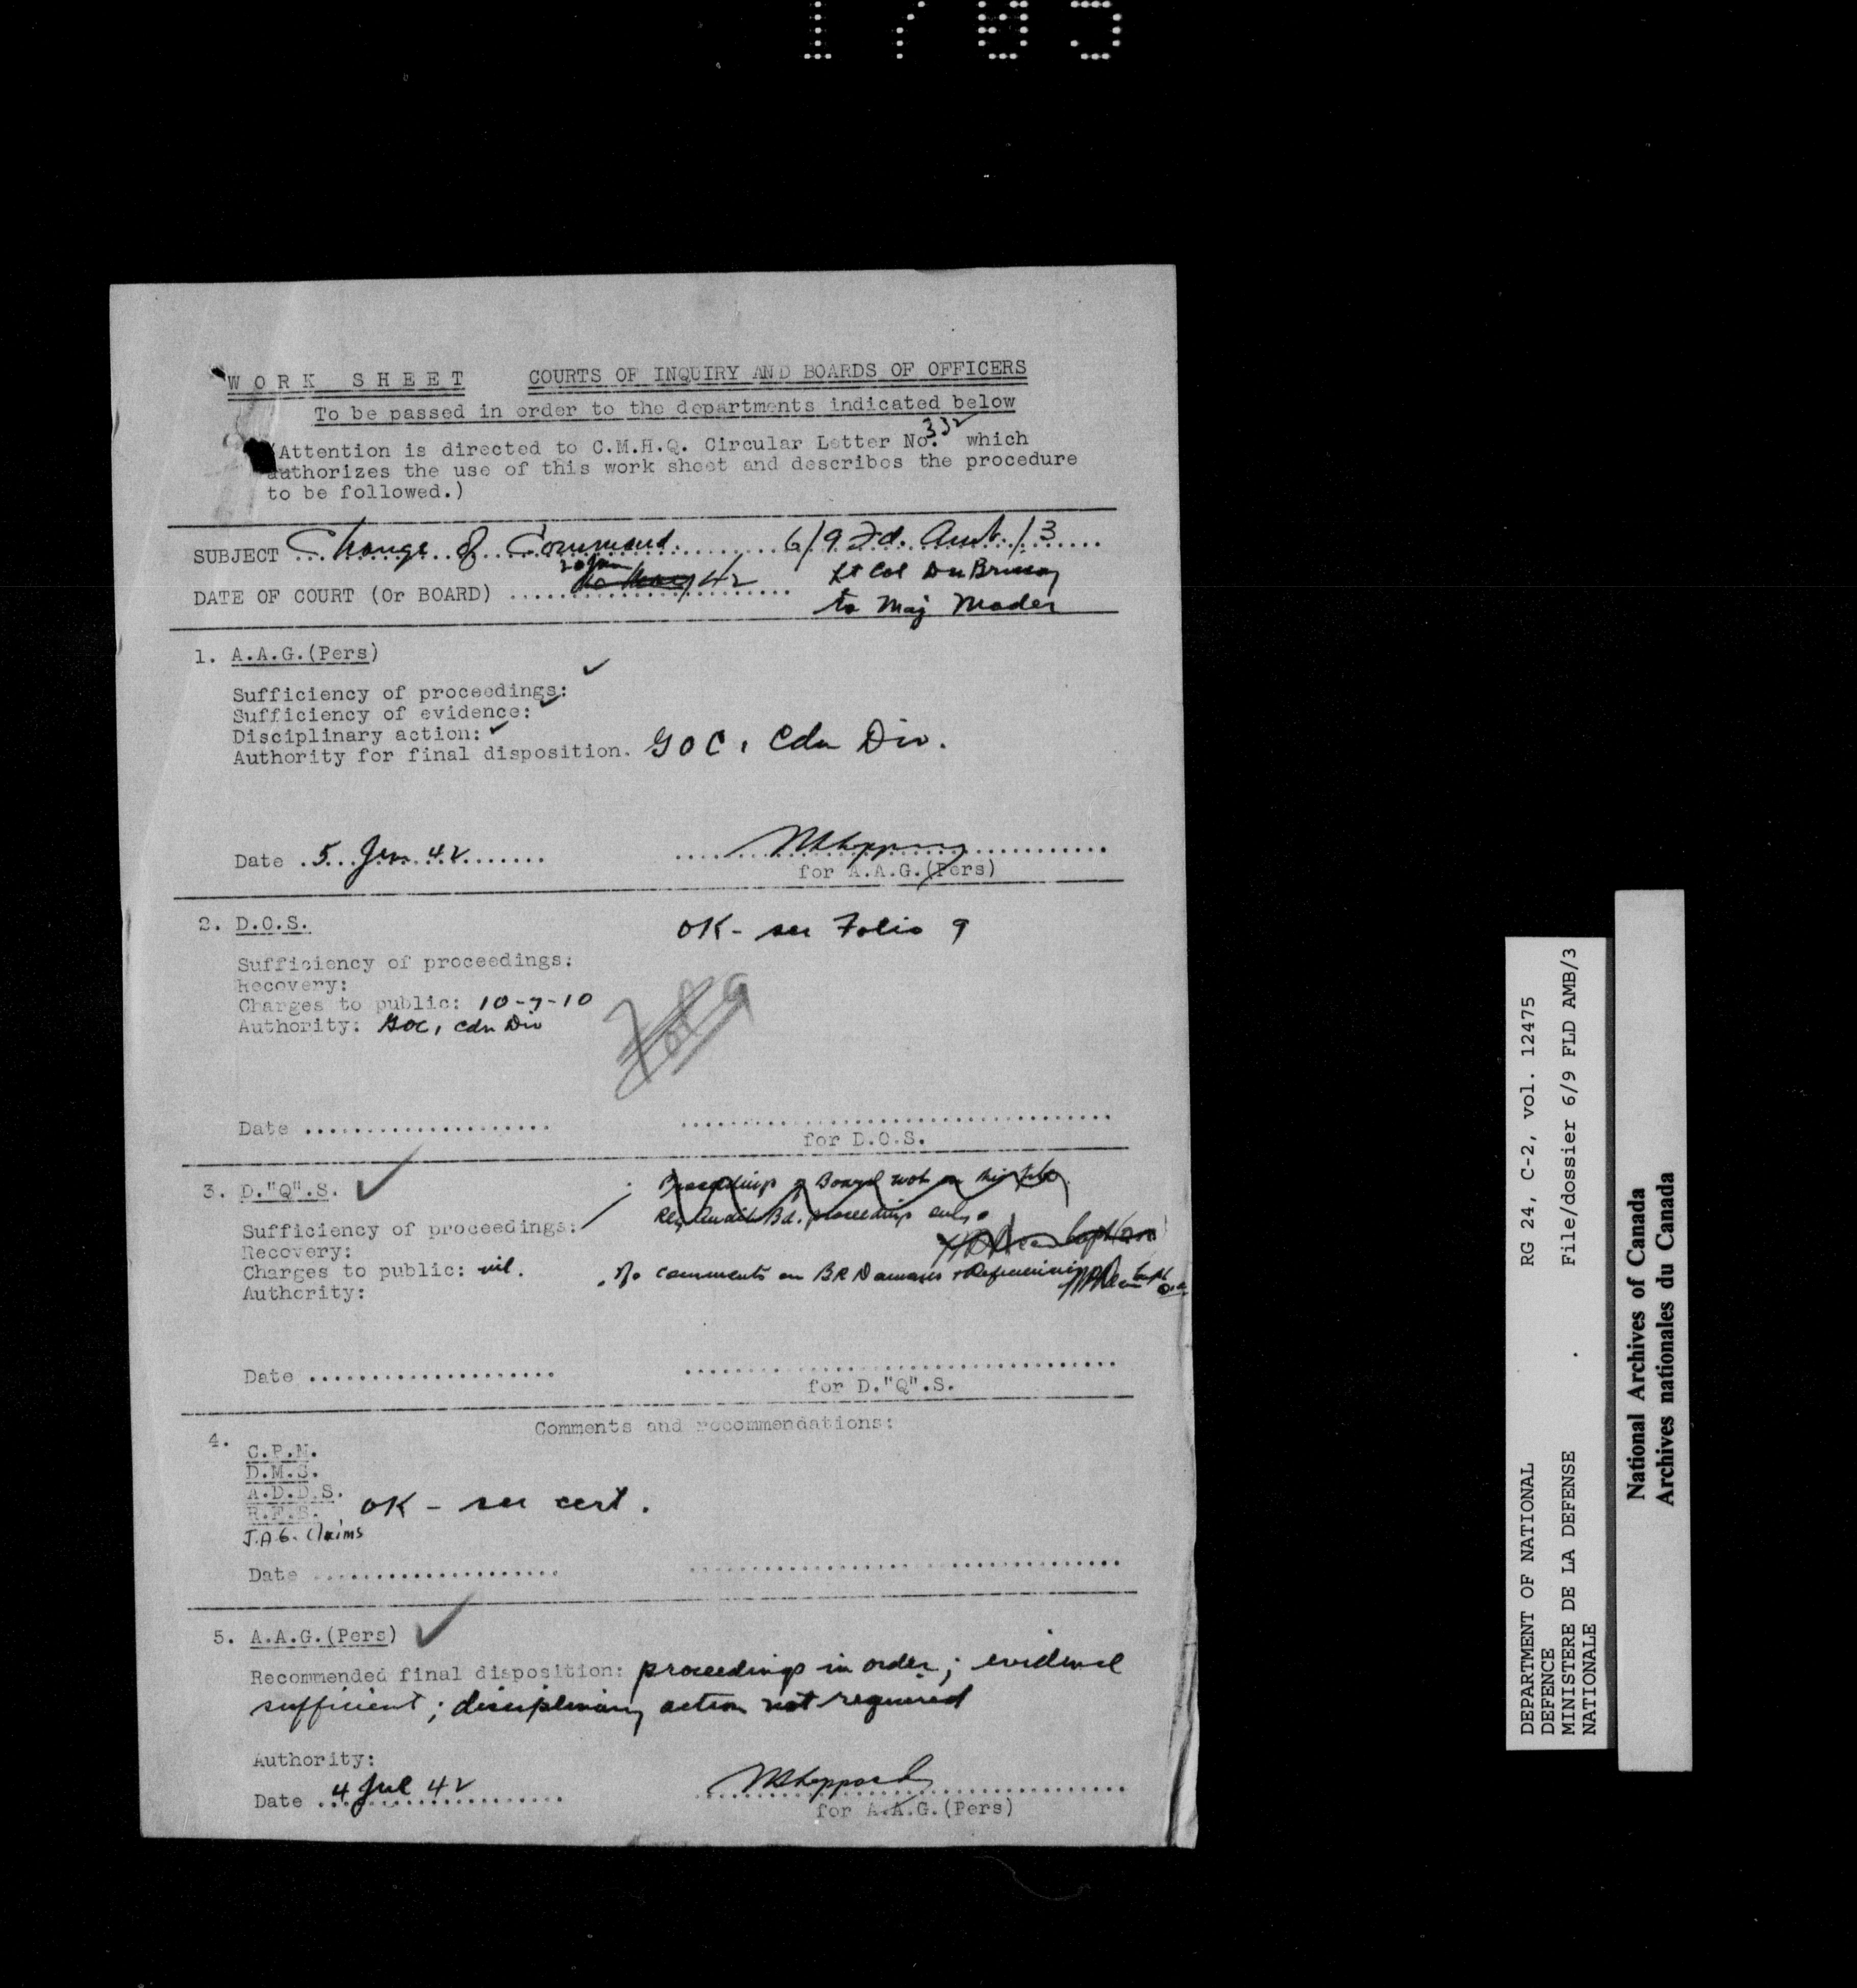 1705
WORK SHEET COURTS OF INQUIRY AND BOARDS OF OFFICERS
To be passed in order to the departments indicated below
(Attention is directed to C.M.H.Q. Circular Letter No. 332 which
authorizes the use of this work sheet and describes the procedure
to be followed.)
SUBJECT Change of Command 6/9 Fd. Amb. /3
20 Jun
DATE OF COURT (Or BOARD) 42 Lt Col
to Maj Mader
1. A.A.G.(Pers)
Sufficiency of proceedings: ✓
Sufficiency of evidence: ✓
Disciplinary action: ✓
Authority for final disposition. GOC, Cdn Div.
Date 5 Jun 42
for A.A.G.(Pers)
2. D.O.S. OK - see Folio 9
Sufficiency of proceedings:
Recovery:
Charges to public: 10-7-10
Authority: GOC, Cdn Div
Fol 9
Date
for D.O.S.
3. D."Q".S. ✓
Proceedings of Board not on this file
Reg Audit Bd. proceedings only.
Sufficiency of proceedings:
Recovery:
Charges to public: nil.
No comments on BR Damages &
Authority:
Date
for D."Q".S.
4. Comments and recommendations:
C.P.M.
D.M.S.
A.D.D.S.
R.F.S. OK - see cert.
J.A.G. Claims
Date
5. A.A.G.(Pers) ✓
Recommended final disposition: proceedings in order; evidence
sufficient; disciplinary action not required
Authority:
Date 4 Jul 42
for A.A.G.(Pers)
DEPARTMENT OF NATIONAL RG 24, C-2, vol. 12475
DEFENCE
MINISTERE DE LA DEFENSE File/dossier 6/9 FLD AMB/3
NATIONALE
National Archives of Canada
Archives nationales du Canada